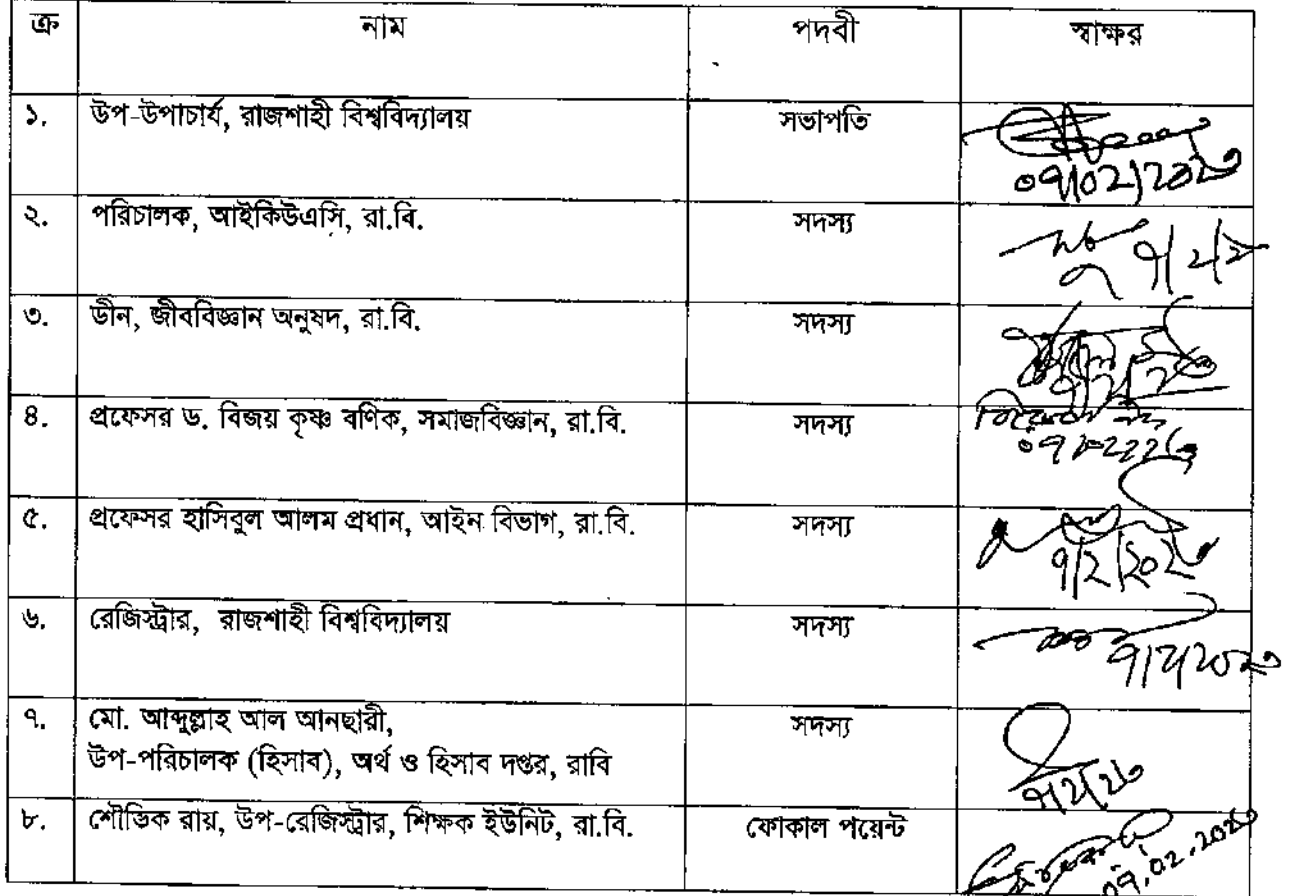 ক্র নাম পদবী স্বাক্ষর
১. উপ-উপাচার্য, রাজশাহী বিশ্ববিদ্যালয় সভাপতি
০৭/০২/২০২৩
২. পরিচালক, আইকিউএসি, রা.বি. সদস্য
৩. ডীন, জীববিজ্ঞান অনুষদ, রা.বি. সদস্য
৪. প্রফেসর ড. বিজয় কৃষ্ণ বণিক, সমাজবিজ্ঞান, রা.বি. সদস্য
৫. প্রফেসর হাসিবুল আলম প্রধান, আইন বিভাগ, রা.বি. সদস্য
৬. রেজিস্ট্রার, রাজশাহী বিশ্ববিদ্যালয় সদস্য
৭/২/২০২৩
৭. মো. আব্দুল্লাহ আল আনছারী, সদস্য
উপ-পরিচালক (হিসাব), অর্থ ও হিসাব দপ্তর, রাবি
৮. শৌভিক রায়, উপ-রেজিস্ট্রার, শিক্ষক ইউনিট, রা.বি. ফোকাল পয়েন্ট
০৭.০২.২০২৩